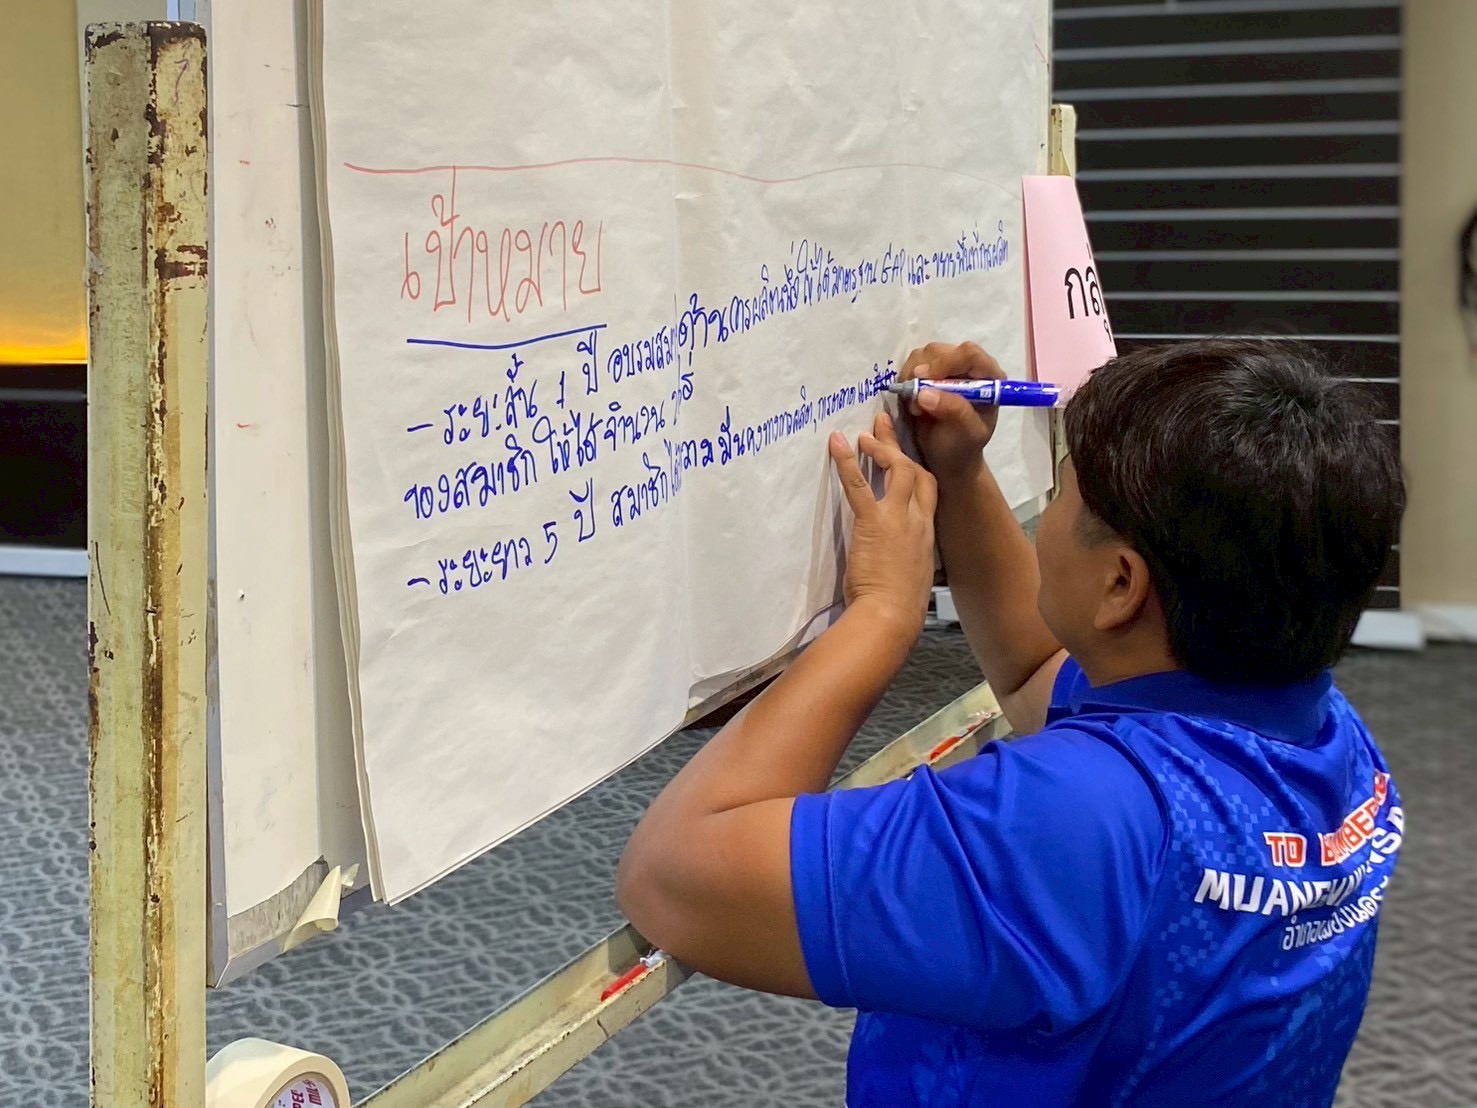 เป้าหมาย
- ระยะสั้น 1 ปี อบรมสมาชิกด้านการผลิตพืชให้ได้มาตรฐาน GAP และขยายพื้นที่การผลิต
ของสมาชิก ให้ได้จำนวน ไร่
- ระยะยาว 5 ปี สมาชิกได้ความมั่นคงทางการผลิต, การตลาด และ
กลุ่
TO BE NUMBER
MUANG
อำเภอเมือง